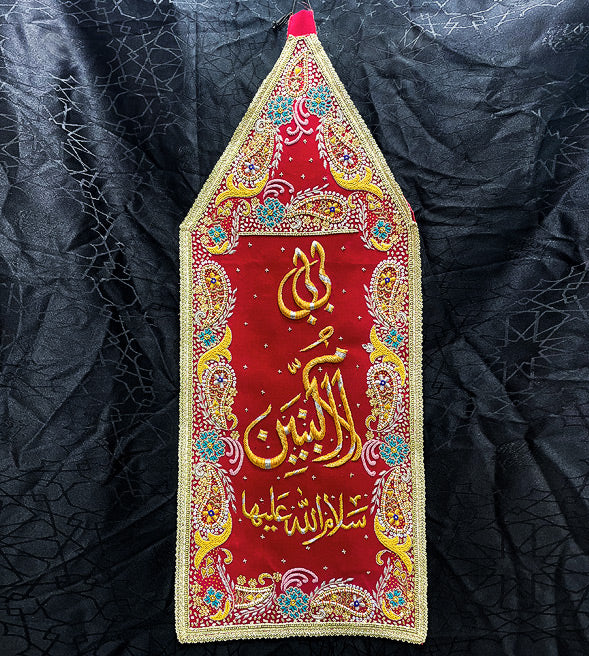 یا
اُم البنین
سَلام اللّه عَلیها